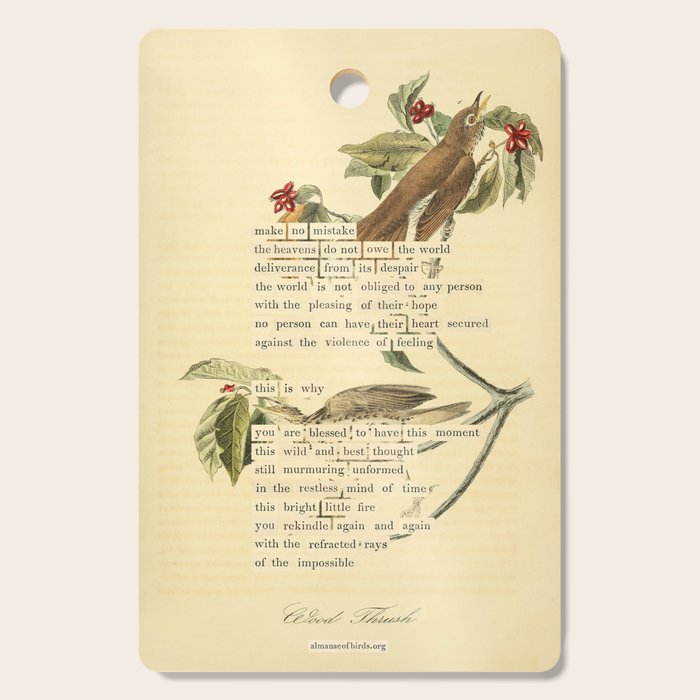 make no mistake
the heavens do not owe the world
deliverance from its despair
the world is not obliged to any person
with the pleasing of their hope
no person can have their heart secured
against the violence of feeling
this is why
you are blessed to have this moment
this wild and best thought
still murmuring unformed
in the restless mind of time
this bright little fire
you rekindle again and again
with the refracted rays
of the impossible
Wood Thrush
almanacofbirds.org